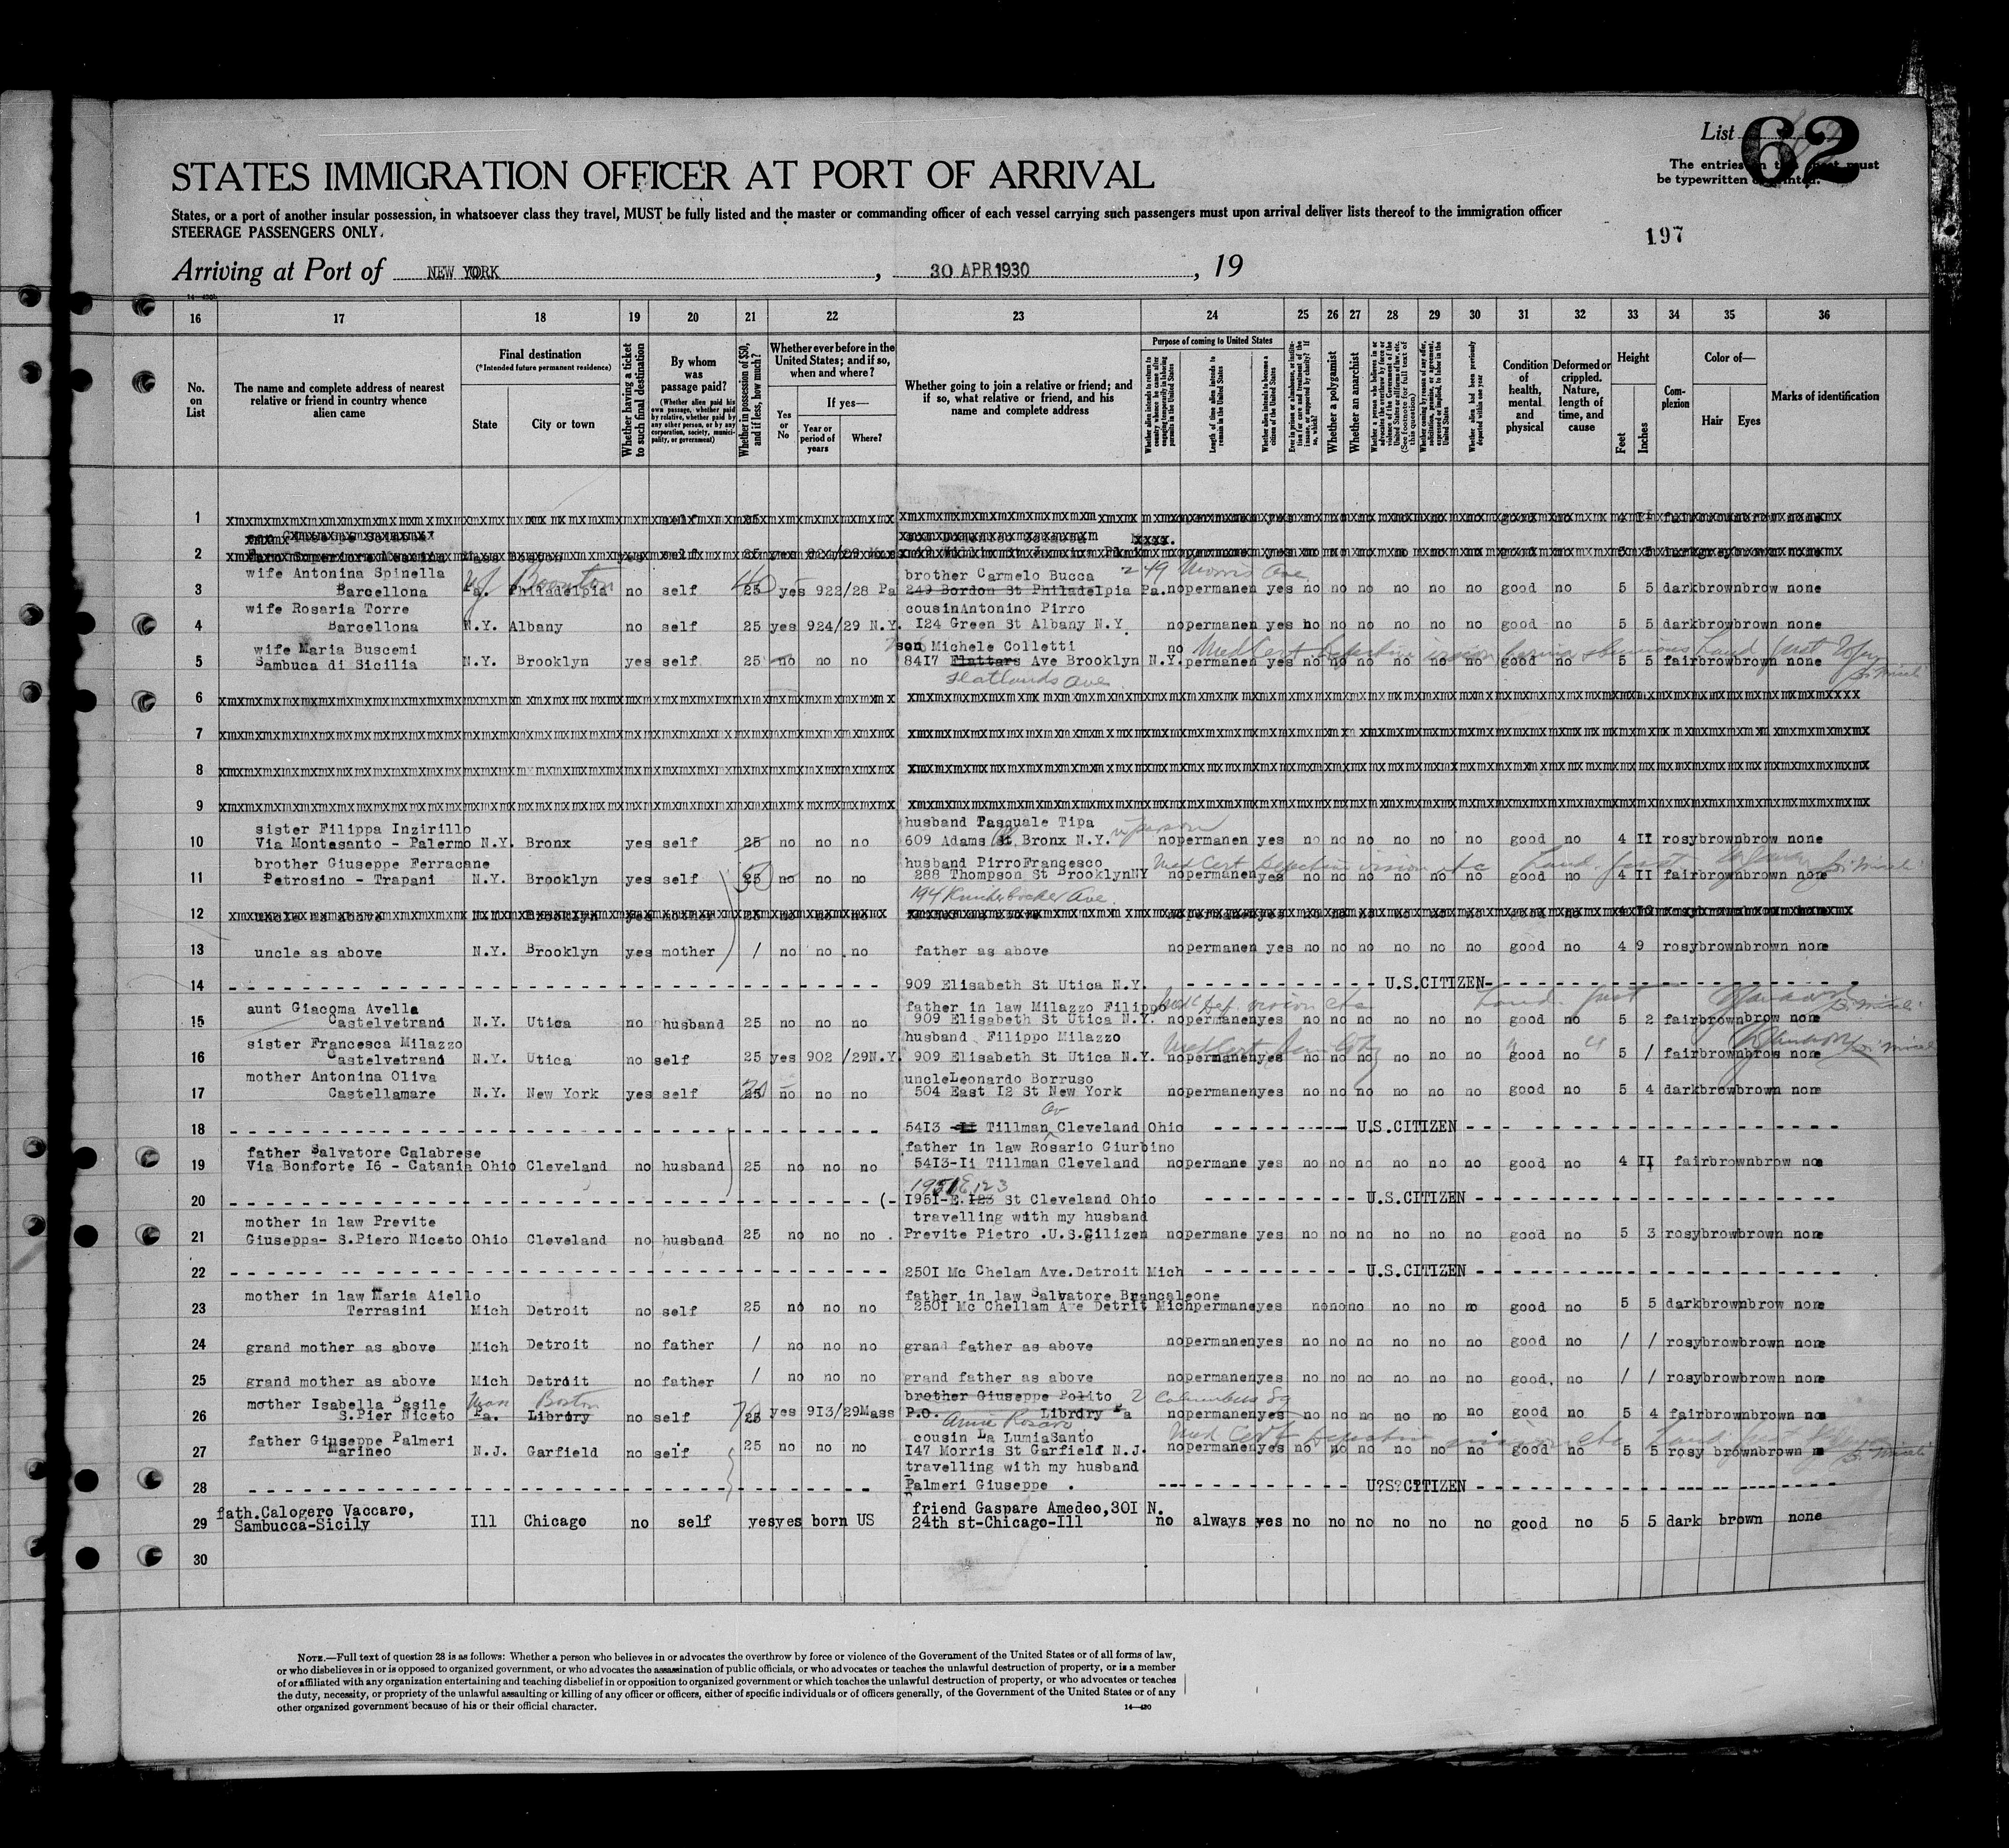 List 62
The entries on this sheet must
be typewritten or printed.
STATES IMMIGRATION OFFICER AT PORT OF ARRIVAL
States, or a port of another insular possession, in whatsoever class they travel, MUST be fully listed and the master or commanding officer of each vessel carrying such passengers must upon arrival deliver lists thereof to the immigration officer
STEERAGE PASSENGERS ONLY.
197
Arriving at Port of NEW YORK, 30 APR 1930, 19
16 17 18 19 20 21 22 23 24 25 26 27 28 29 30 31 32 33 34 35 36
No. on List
The name and complete address of nearest relative or friend in country whence alien came
Final destination
(*Intended future permanent residence)
State
City or town
Whether having a ticket to such final destination
By whom was passage paid?
(Whether alien paid his own passage, whether paid by relative, whether paid by any other person, or by any corporation, society, municipality, or government)
Whether in possession of $50, and if less, how much?
Whether ever before in the United States; and if so, when and where?
Yes or No
If yes—
Year or period of years
Where?
Whether going to join a relative or friend; and if so, what relative or friend, and his name and complete address
Purpose of coming to United States
Length of time alien intends to remain in the United States
Whether alien intends to become a citizen of the United States
Whether a polygamist
Whether an anarchist
Condition of health, mental and physical
Deformed or crippled. Nature, length of time, and cause
Height
Feet
Inches
Complexion
Color of—
Hair
Eyes
Marks of identification
1
2
wife Antonina Spinella brother Carmelo Bucca 249 Morris Ave
3 Barcellona Pa. Philadelpia no self 25 yes 922/28 Pa 249 Bordon St Philadelpia Pa. no permanen yes no no no no no no good no 5 5 dark brown brow none
wife Rosaria Torre cousin Antonino Pirro
4 Barcellona N.Y. Albany no self 25 yes 924/29 N.Y. I24 Green St Albany N.Y no permanen yes no no no no no no good no 5 5 dark brown brown none
wife Maria Buscemi son Michele Colletti
5 Sambuca di Sicilia N.Y. Brooklyn yes self 25 no no no 84I7 Flatters Ave Brooklyn N.Y. no permanen yes no no no no no no good no 5 5 fair brown brown none
Flatlands Ave
6
7
8
9
sister Filippa Inzirillo husband Pasquale Tipa
10 Via Montesanto - Palermo N.Y. Bronx yes self 25 no no no 609 Adams St Bronx N.Y. no permanen yes no no no no no no good no 4 II rosy brown brow none
brother Giuseppe Ferracane husband Pirro Francesco
11 Petrosino - Trapani N.Y. Brooklyn yes self 25 50 no no no 288 Thompson St Brooklyn NY no permanen yes no no no no no no good no 4 II fair brown brown none
194 Knickerbocker Ave.
12
13 uncle as above N.Y. Brooklyn yes mother / no no no father as above no permanen yes no no no no no no good no 4 9 rosy brown brown none
14 909 Elisabeth St Utica N.Y. U.S.CITIZEN
aunt Giacoma Avella father in law Milazzo Filippo
15 Castelvetrano N.Y. Utica no husband 25 no no no 909 Elisabeth St Utica N.Y. no permanen yes no no no no no no good no 5 2 fair brown brow none
sister Francesca Milazzo husband Filippo Milazzo
16 Castelvetrano N.Y. Utica no self 25 yes 902 /29 N.Y. 909 Elisabeth St Utica N.Y. no permanen yes no no no no no no good no 5 / fair brown brow none
mother Antonina Oliva uncle Leonardo Borruso
17 Castellamare N.Y. New York yes self 25 no no no 504 East I2 St New York no permanen yes no no no no no no good no 5 4 dark brown brown none
18 54I3 Tillman Av Cleveland Ohio U.S.CITIZEN
father Salvatore Calabrese father in law Rosario Giurbino
19 Via Bonforte I6 - Catania Ohio Cleveland no husband 25 no no no 54I3-Ii Tillman Cleveland no permane yes no no no no no no good no 4 II fair brown brow none
1951 E 123
20 I95I-E.I23 St Cleveland Ohio U.S.CITIZEN
mother in law Previte travelling with my husband
21 Giuseppa- S.Piero Niceto Ohio Cleveland no husband 25 no no no . Previte Pietro .U.S.Gilizen no permane yes no no no no no no good no 5 3 rosy brown brown none
22 250I Mc Chelam Ave.Detroit Mich U.S.CITIZEN
mother in law Maria Aiello father in law Salvatore Brancaleone
23 Terrasini Mich Detroit no self 25 no no no 250I Mc Chellam Ave Detrit Mich permane yes no no no no no no good no 5 5 dark brown brow none
24 grand mother as above Mich Detroit no father / no no no grand father as above no permanen yes no no no no no no good no / / rosy brown brown none
25 grand mother as above Mich Detroit no father / no no no grand father as above no permanen yes no no no no no no good, no / / rosy brown brown none
mother Isabella Basile Boston brother Giuseppe Polito 2 Columbus Sq
26 S.Pier Niceto Pa. Librdry no self 25 yes 9I3/29 Mass P.O. Librdry Pa no permanen yes no no no no no no good no 5 4 fair brown brown no
father Giuseppe Palmeri cousin La Lumia Santo
27 Marineo N.J. Garfield no self 25 no no no I47 Morris St Garfield N.J. no permanen yes no no no no no no good no 5 5 rosy brown brown
travelling with my husband
28 Palmeri Giuseppe . U?S?CITIZEN
fath.Calogero Vaccaro, friend Gaspare Amedeo,30I N.
29 Sambucca-Sicily Ill Chicago no self yes yes born US 24th st-Chicago-Ill no always yes no no no no no no good no 5 5 dark brown none
30
NOTE.—Full text of question 28 is as follows: Whether a person who believes in or advocates the overthrow by force or violence of the Government of the United States or of all forms of law,
or who disbelieves in or is opposed to organized government, or who advocates the assassination of public officials, or who advocates or teaches the unlawful destruction of property, or is a member
of or affiliated with any organization entertaining and teaching disbelief in or opposition to organized government or which teaches the unlawful destruction of property, or who advocates or teaches
the duty, necessity, or propriety of the unlawful assaulting or killing of any officer or officers, either of specific individuals or of officers generally, of the Government of the United States or of any
other organized government because of his or their official character.
14—430